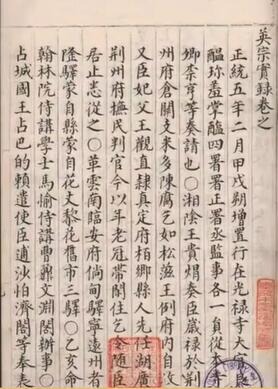 英宗實録卷之
正統五年二月甲戌朔增置行在光禄寺大官良
醞珎羞掌醢四署署正署丞監事各一員從本寺
卿柰亨等奏請也〇湘陰王貴煟奏臣歲禄於荆
州府倉關支米多陳腐乞如松滋王例府内自收
又臣妃父王觀直隷真定府栢鄉縣人先任湖廣
荆州府撫民判官今以年老冠帶閑住乞令隨臣
居止悉從之〇革雲南臨安府倘甸驛寧遠州者
隆驛蒙自縣蒙自花文黎花舊市三驛〇乙亥命
翰林院侍講學士馬愉侍講曹鼐文淵閣辦事〇
占城國王占巴的賴遣使臣逋沙怕濟閣等奏表